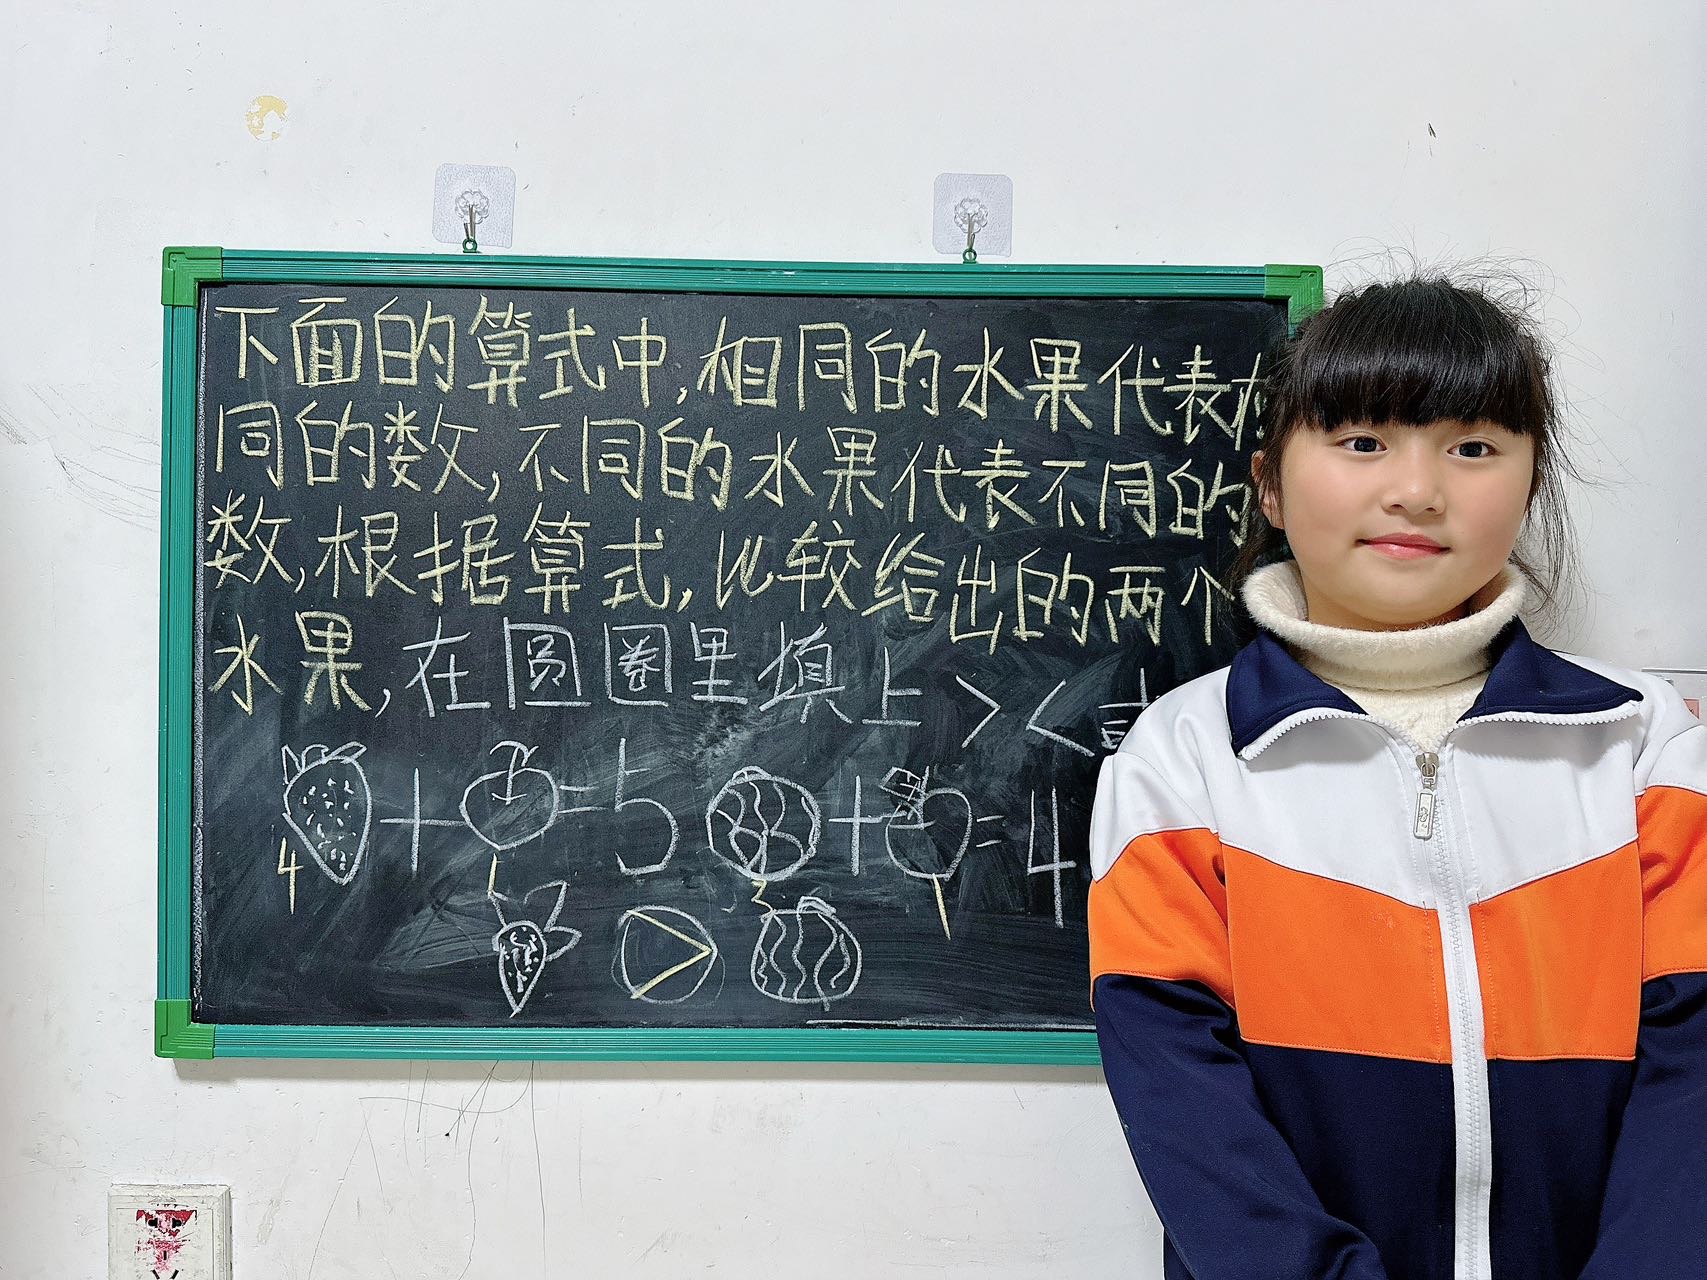 下面的算式中,相同的水果代表
同的数,不同的水果代表不同的
数,根据算式,比较给出的两个
水果,在圆圈里填上 > <
+ = 5 + = 4
4 1 3 1
>